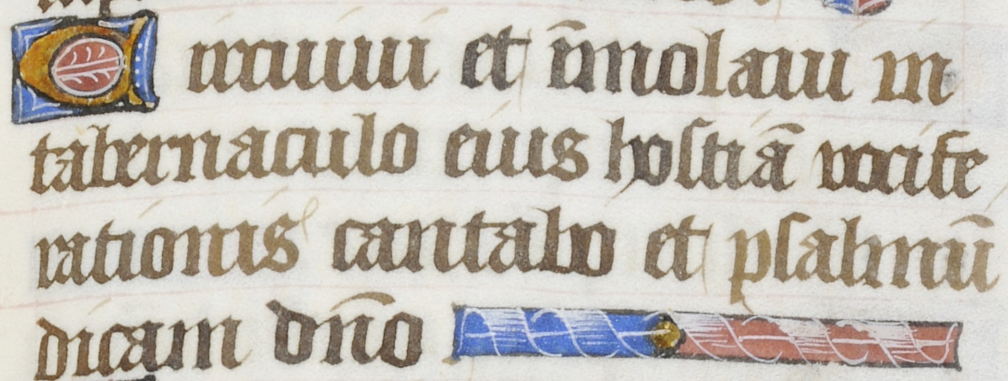 Circuivi et īmolaui in
tabernaculo eius hostiā vocife
rationis cantabo et psalmū
dicam dn̄o